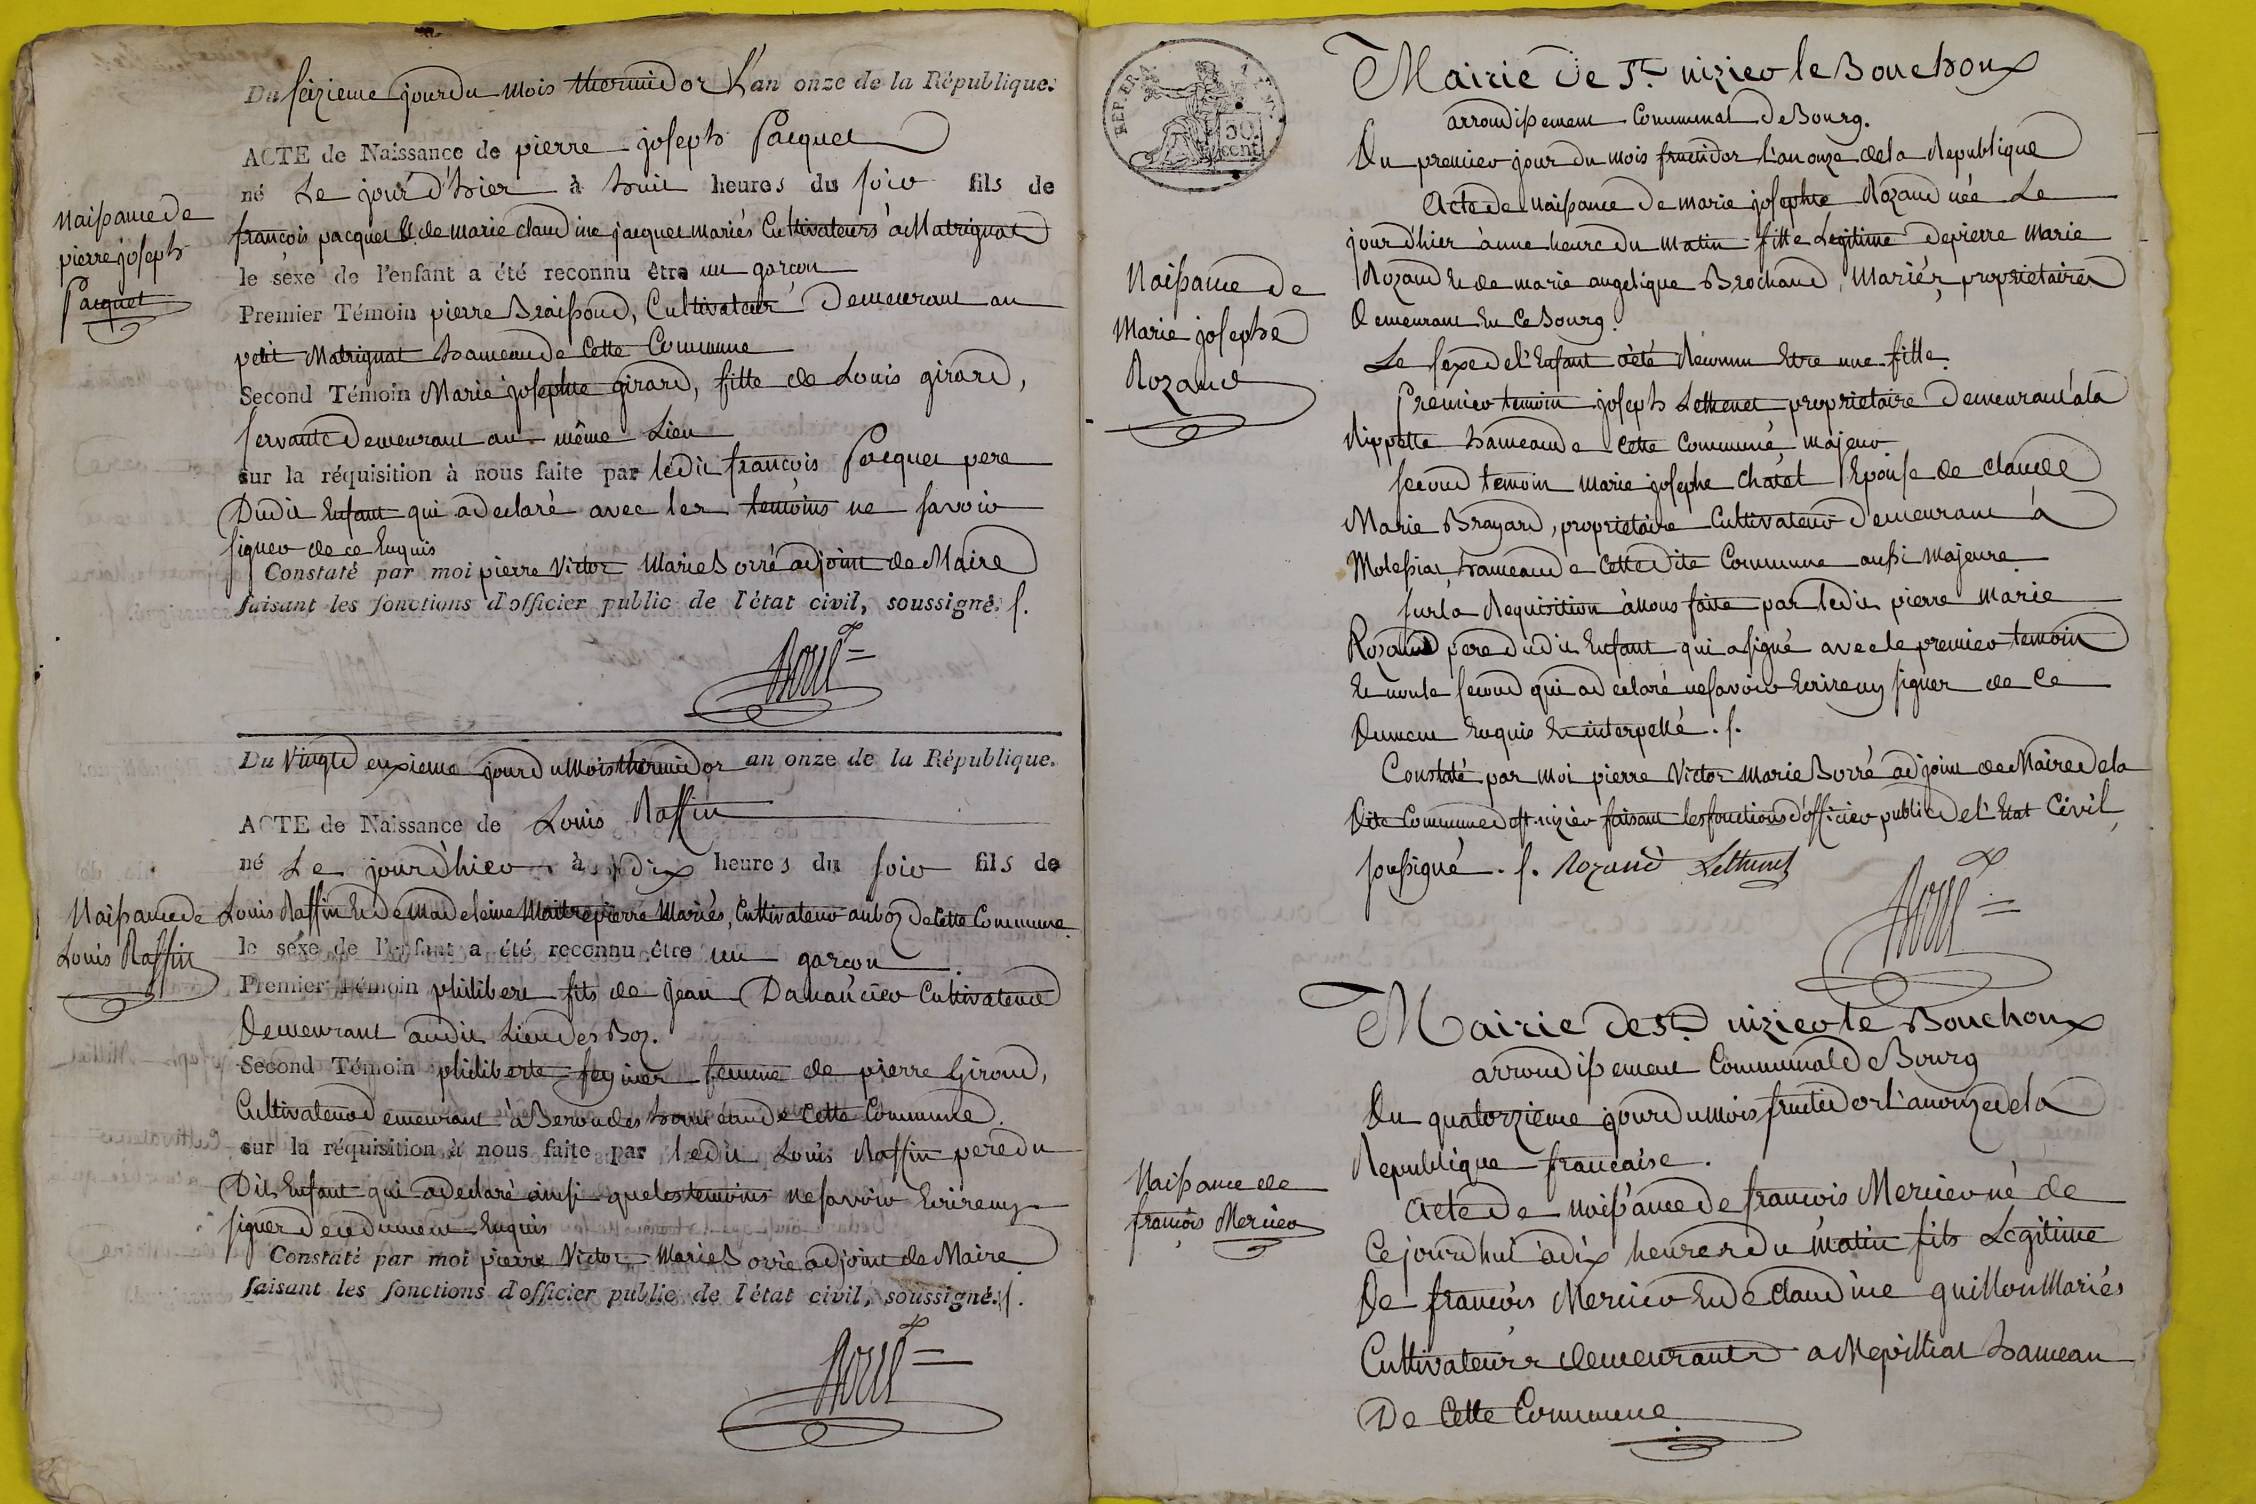 Du seizieme jour du mois thermidor L'an onze de la République.
ACTE de Naissance de pierre joseph Pacquet
né Le jour d'hier à huit heures du soir fils de
françois pacquet & de marie claudine jacquet mariés Cultivateurs à Matrignat
le sexe de l'enfant a été reconnu être un garçon
Premier Témoin pierre Braissoud, Cultivateur Demeurant au
petit Matrignat hameau de Cette Commune
Second Témoin Marie josephte girard, fille de Louis girard,
servante Demeurant au même Lieu
sur la réquisition à nous faite par ledit françois Pacquet pere
Dudit Enfant qui a declaré avec les temoins ne savoir
signer de ce Enquis
Constaté par moi pierre Victor Marie Borré adjoint de Maire
faisant les fonctions d'officier public de l'état civil, soussigné. /.
Borré
Naissance de
pierre joseph
Pacquet
Du Vingt deuxieme jour du Mois thermidor an onze de la République.
ACTE de Naissance de Louis Raffin
né Le jour d'hier à dix heures du soir fils de
Louis Raffin Et de Madeleine Maitrepierre Mariés, Cultivateur au boz de Cette Commune.
le sexe de l'enfant a été reconnu être un garçon.
Premier Témoin philibert fils de jean Cultivateur
Demeurant audit Lieu des Boz.
Second Témoin philiberte femme de pierre Giroud,
Cultivateur demeurant à Beroudes hameau de Cette Commune.
sur la réquisition à nous faite par ledit Louis Raffin pere du
Dit Enfant qui a declaré ainsi que les temoins ne savoir Ecrire ny
signer de ce dument Enquis
Constaté par moi pierre Victor Marie Borré adjoint de Maire
faisant les fonctions d'officier public de l'état civil, soussigné. /.
Borré
Naissance de
Louis Raffin
REP. FRA.
50
cent.
Mairie de St. nizier le Bouchoux
arrondissement Communal de Bourg.
Du premier jour du mois fructidor l'an onze de la Republique
Acte de Naissance de marie josephte Rozand née Le
jour d'hier à une heure du matin fille Legitime de pierre Marie
Rozand Et de marie angelique Brochand, Mariés, proprietaires
demeurant En Ce Bourg.
Le sexe de l'Enfant a été Reconnu Etre une fille.
Premier temoin joseph Lethenet proprietaire Demeurant à la
Rippette hameau de cette Commune, majeur
second temoin marie josephe Chatet Epouse de claude
Marie Brayard, proprietaire Cultivateur demeurant à
Molessiat, hameau de Cette dite Commune aussi Majeure
sur la Requisition à Nous faite par ledit pierre marie
Rozand pere dudit Enfant qui a signé avec le premier temoin
Et non le second qui a declaré ne savoir Ecrire ny signer de Ce
Dument Enquis Et interpellé. /.
Constaté par moi pierre Victor Marie Borré adjoint de Maire de la
Dite Commune de St. nizier faisant les fonctions d'officier public de l'Etat Civil,
soussigné. /. Rozand Lethenet
Borré
Naissance de
Marie josephe
Rozand
Mairie de St. nizier le Bouchoux
arrondissement Communal de Bourg
Du quatorzieme jour du mois fructidor l'an onze de la
Republique francaise.
Acte de naissance de francois Mercier né de
Ce jourd'hui à dix heures du matin fils Legitime
De francois Mercier Et de claudine guillon Mariés
Cultivateurs demeurants a Mepilliat hameau
De Cette Commune
Naissance de
françois Mercier